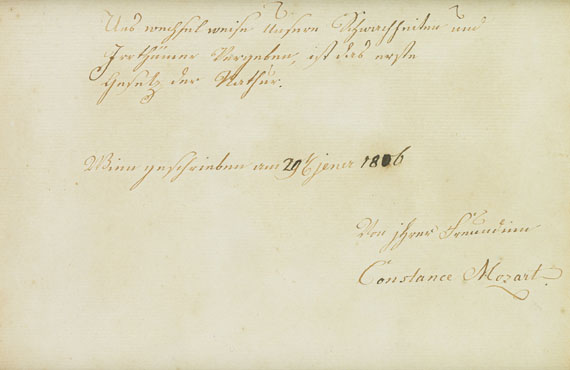 Uns wechsel weise Unsere Schwachheiten und
Irrthümer Vergeben, ist das erste
Gesetz der Nathur.
Wienn geschrieben am 29t jener 1806
Von ihrer Freundinn
Constance Mozart